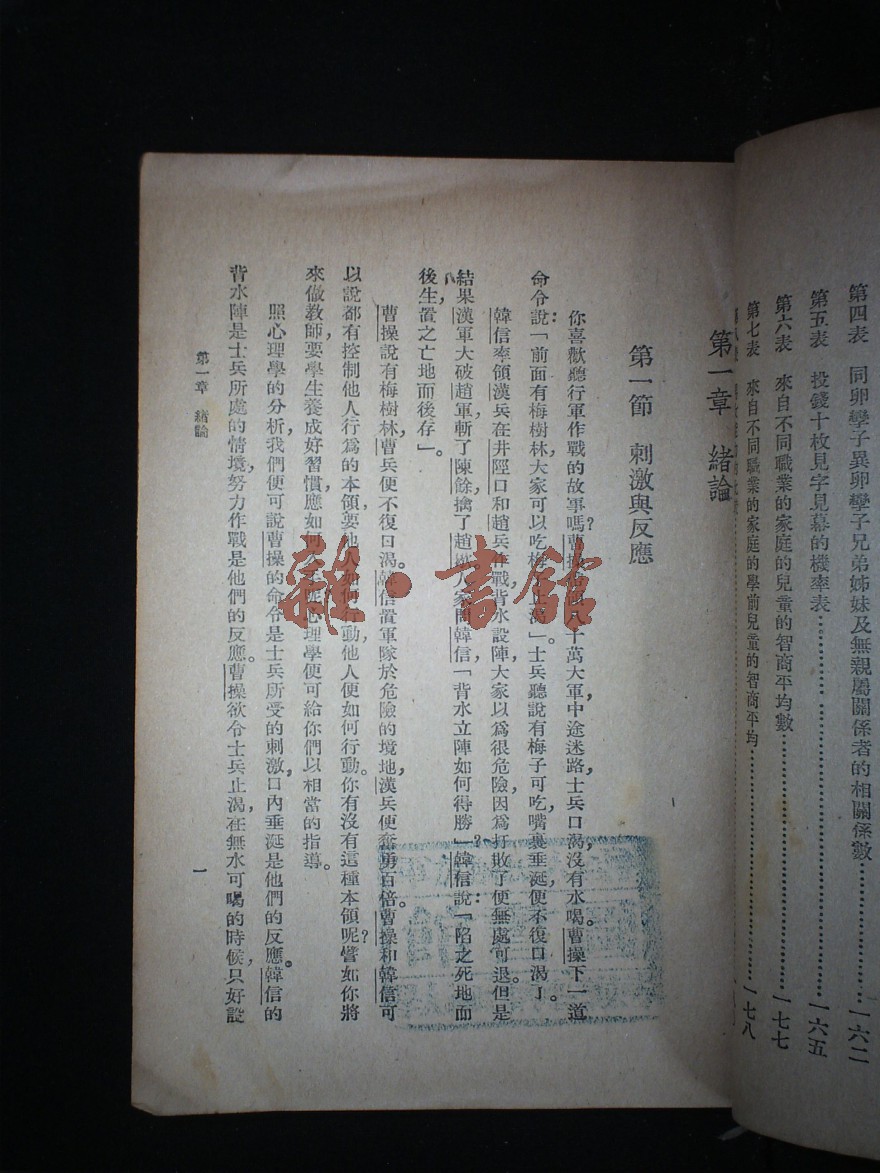 第四表　同卵孿子異卵孿子兄弟姊妹及無親屬關係者的相關係數…………一六二
第五表　投錢十枚見字見幕的機率表…………一六五
第六表　來自不同職業的家庭的兒童的智商平均數…………一七七
第七表　來自不同職業的家庭的學前兒童的智商平均…………一七八
第一章　緒論
第一節　刺激與反應
你喜歡聽行軍作戰的故事嗎？曹操 八十萬大軍中途迷路，士兵口渴，沒有水喝。曹操下一道
命令說：「前面有梅樹林，大家可以吃梅子止渴」。士兵聽說有梅子可吃，嘴裏垂涎，便不復口渴了。
韓信率領漢兵在井陘口和趙兵作戰，背水設陣，大家以為很危險，因為打敗了便無處可退。但是
結果漢軍大破趙軍，斬了陳餘，擒了趙 人家問韓信「背水立陣如何得勝」？韓信說：「陷之死地而
後生，置之亡地而後存」。
曹操說有梅樹林，曹兵便不復口渴。韓信置軍隊於危險的境地，漢兵便奮勇百倍。曹操和韓信可
以說都有控制他人行為的本領，要他人如何行動，他人便如何行動。你有沒有這種本領呢？譬如你將
來做教師，要學生養成好習慣，應如何 呢？心理學便可給你們以相當的指導。
照心理學的分析，我們便可說曹操的命令是士兵所受的刺激，口內垂涎是他們的反應。韓信的
背水陣是士兵所處的情境，努力作戰是他們的反應。曹操欲令士兵止渴，在無水可喝的時候，只好設
第一章　緒論
一
雜·書館